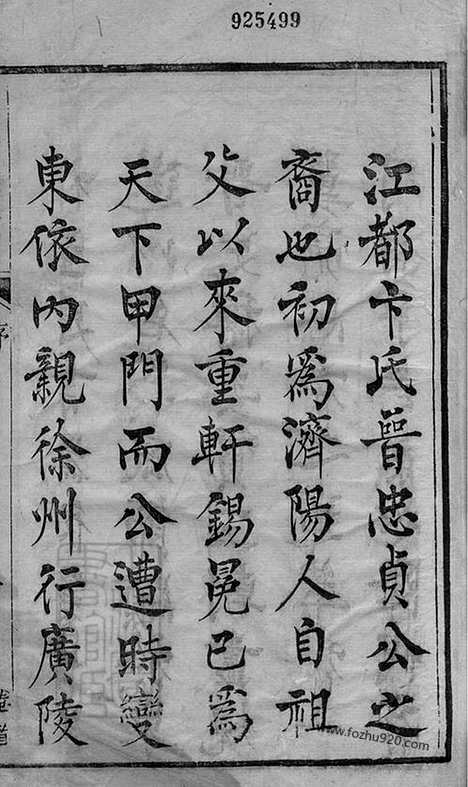 925499
江都卞氏晉忠貞公之
裔也初爲濟陽人自祖
父以來重軒錫冕已爲
天下甲門而公遭時變
東依內親徐州行廣陵
序
卷首
www.fozhu920.com